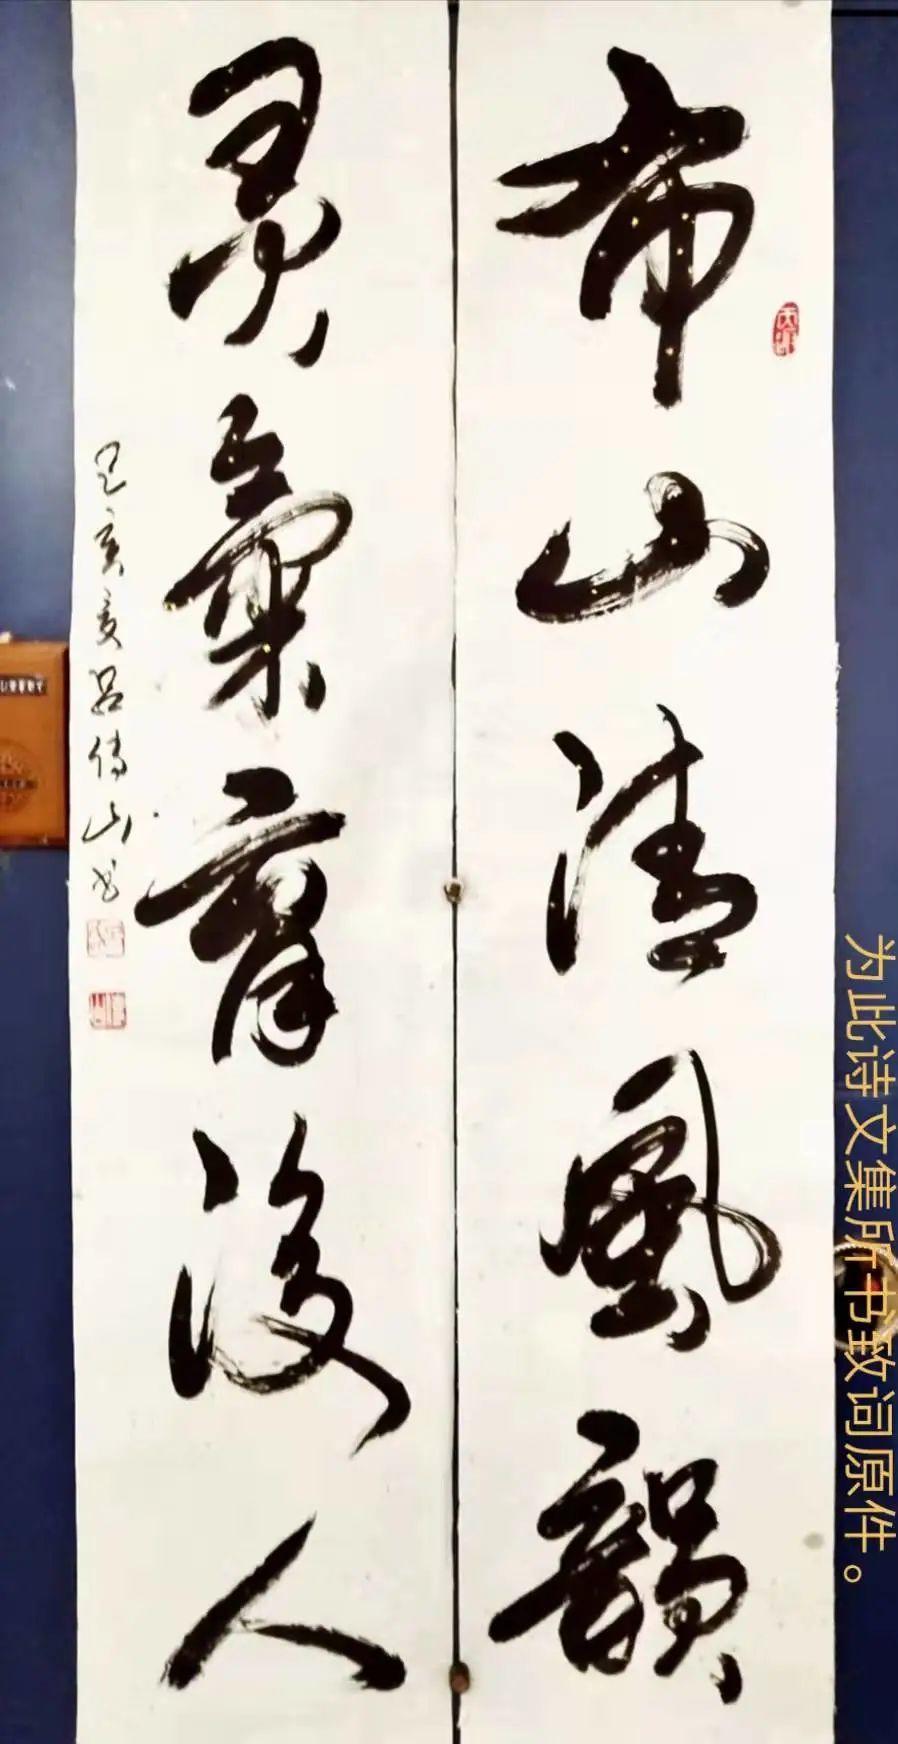 布山清風韻
灵氣育後人
己亥夏吕傳山书
为此诗文集所书致词原件。